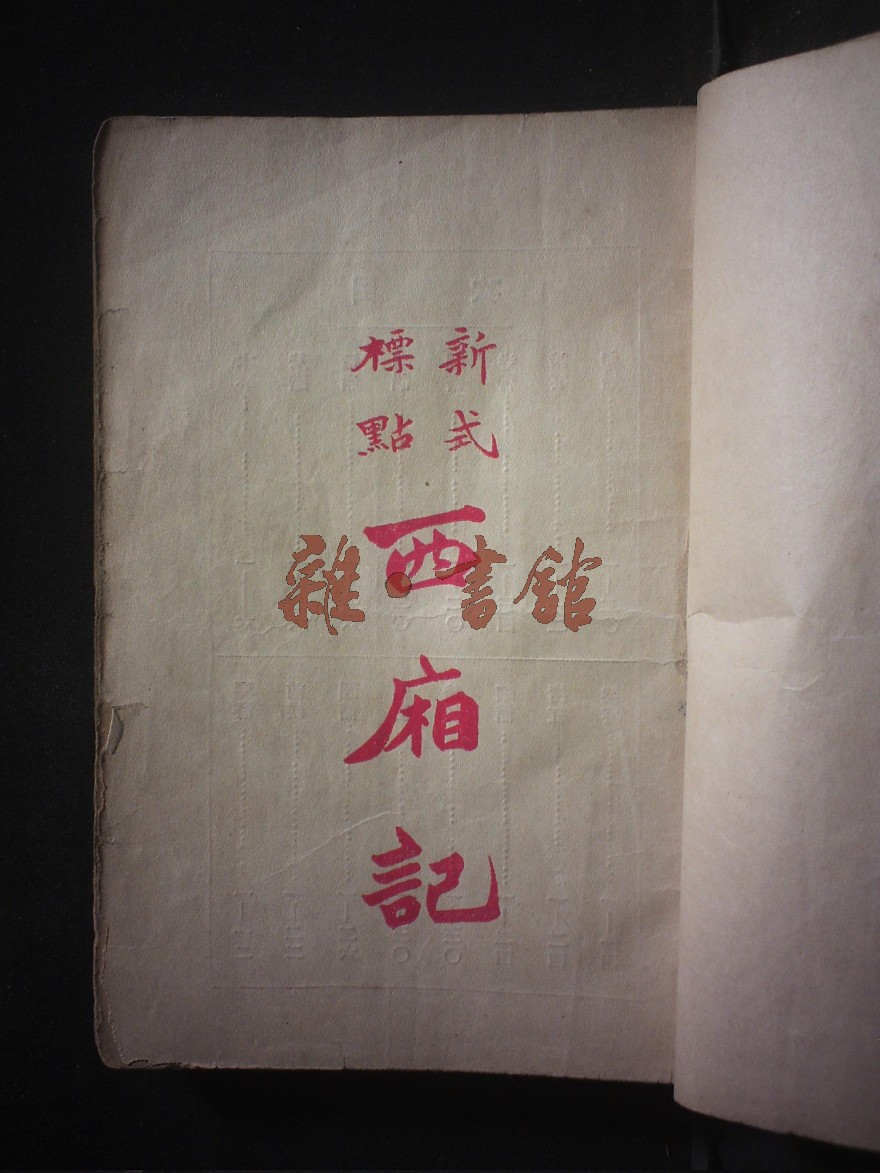 新式
標點
西廂記
雜·書館